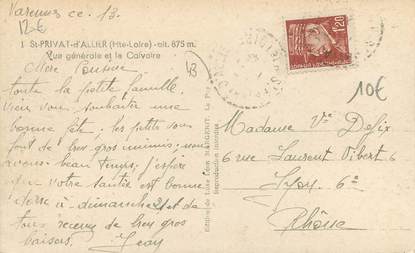 Varennes ce. 13.
12€
1 St-PRIVAT-d'ALLIER (Hte-Loire) - alt. 875 m.
Vue générale et le Calvaire
43
Mere
toute la petite famille
Vien vous souhaiter une
bonne fête. les petits vous
font de bien gros mimis. nous
avons beau temps. j'espère
que votre santée est bonne
à dimanche 21 et de
tous recevez de bien gros
baisers. Jeay
Reproduction interdite
1f20
10€
Madame Ve Defix
6 rue Laurent Vibert 6
Lyon. 6e
Rhône